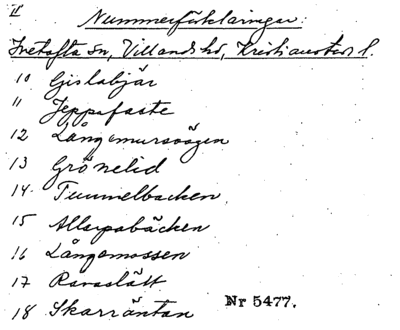 II
Nummerförklaringar:
Ivetofta sn, Villands hd, Kristianstads l.
10 Gislabjär
11 Jeppafaste
12 Långemursvägen
13 Grönelid
14. Tummelbacken.
15 Allarpsbäcken
16 Långamossen
17 Ramslätt
18 Skarräntan
Nr 5477.